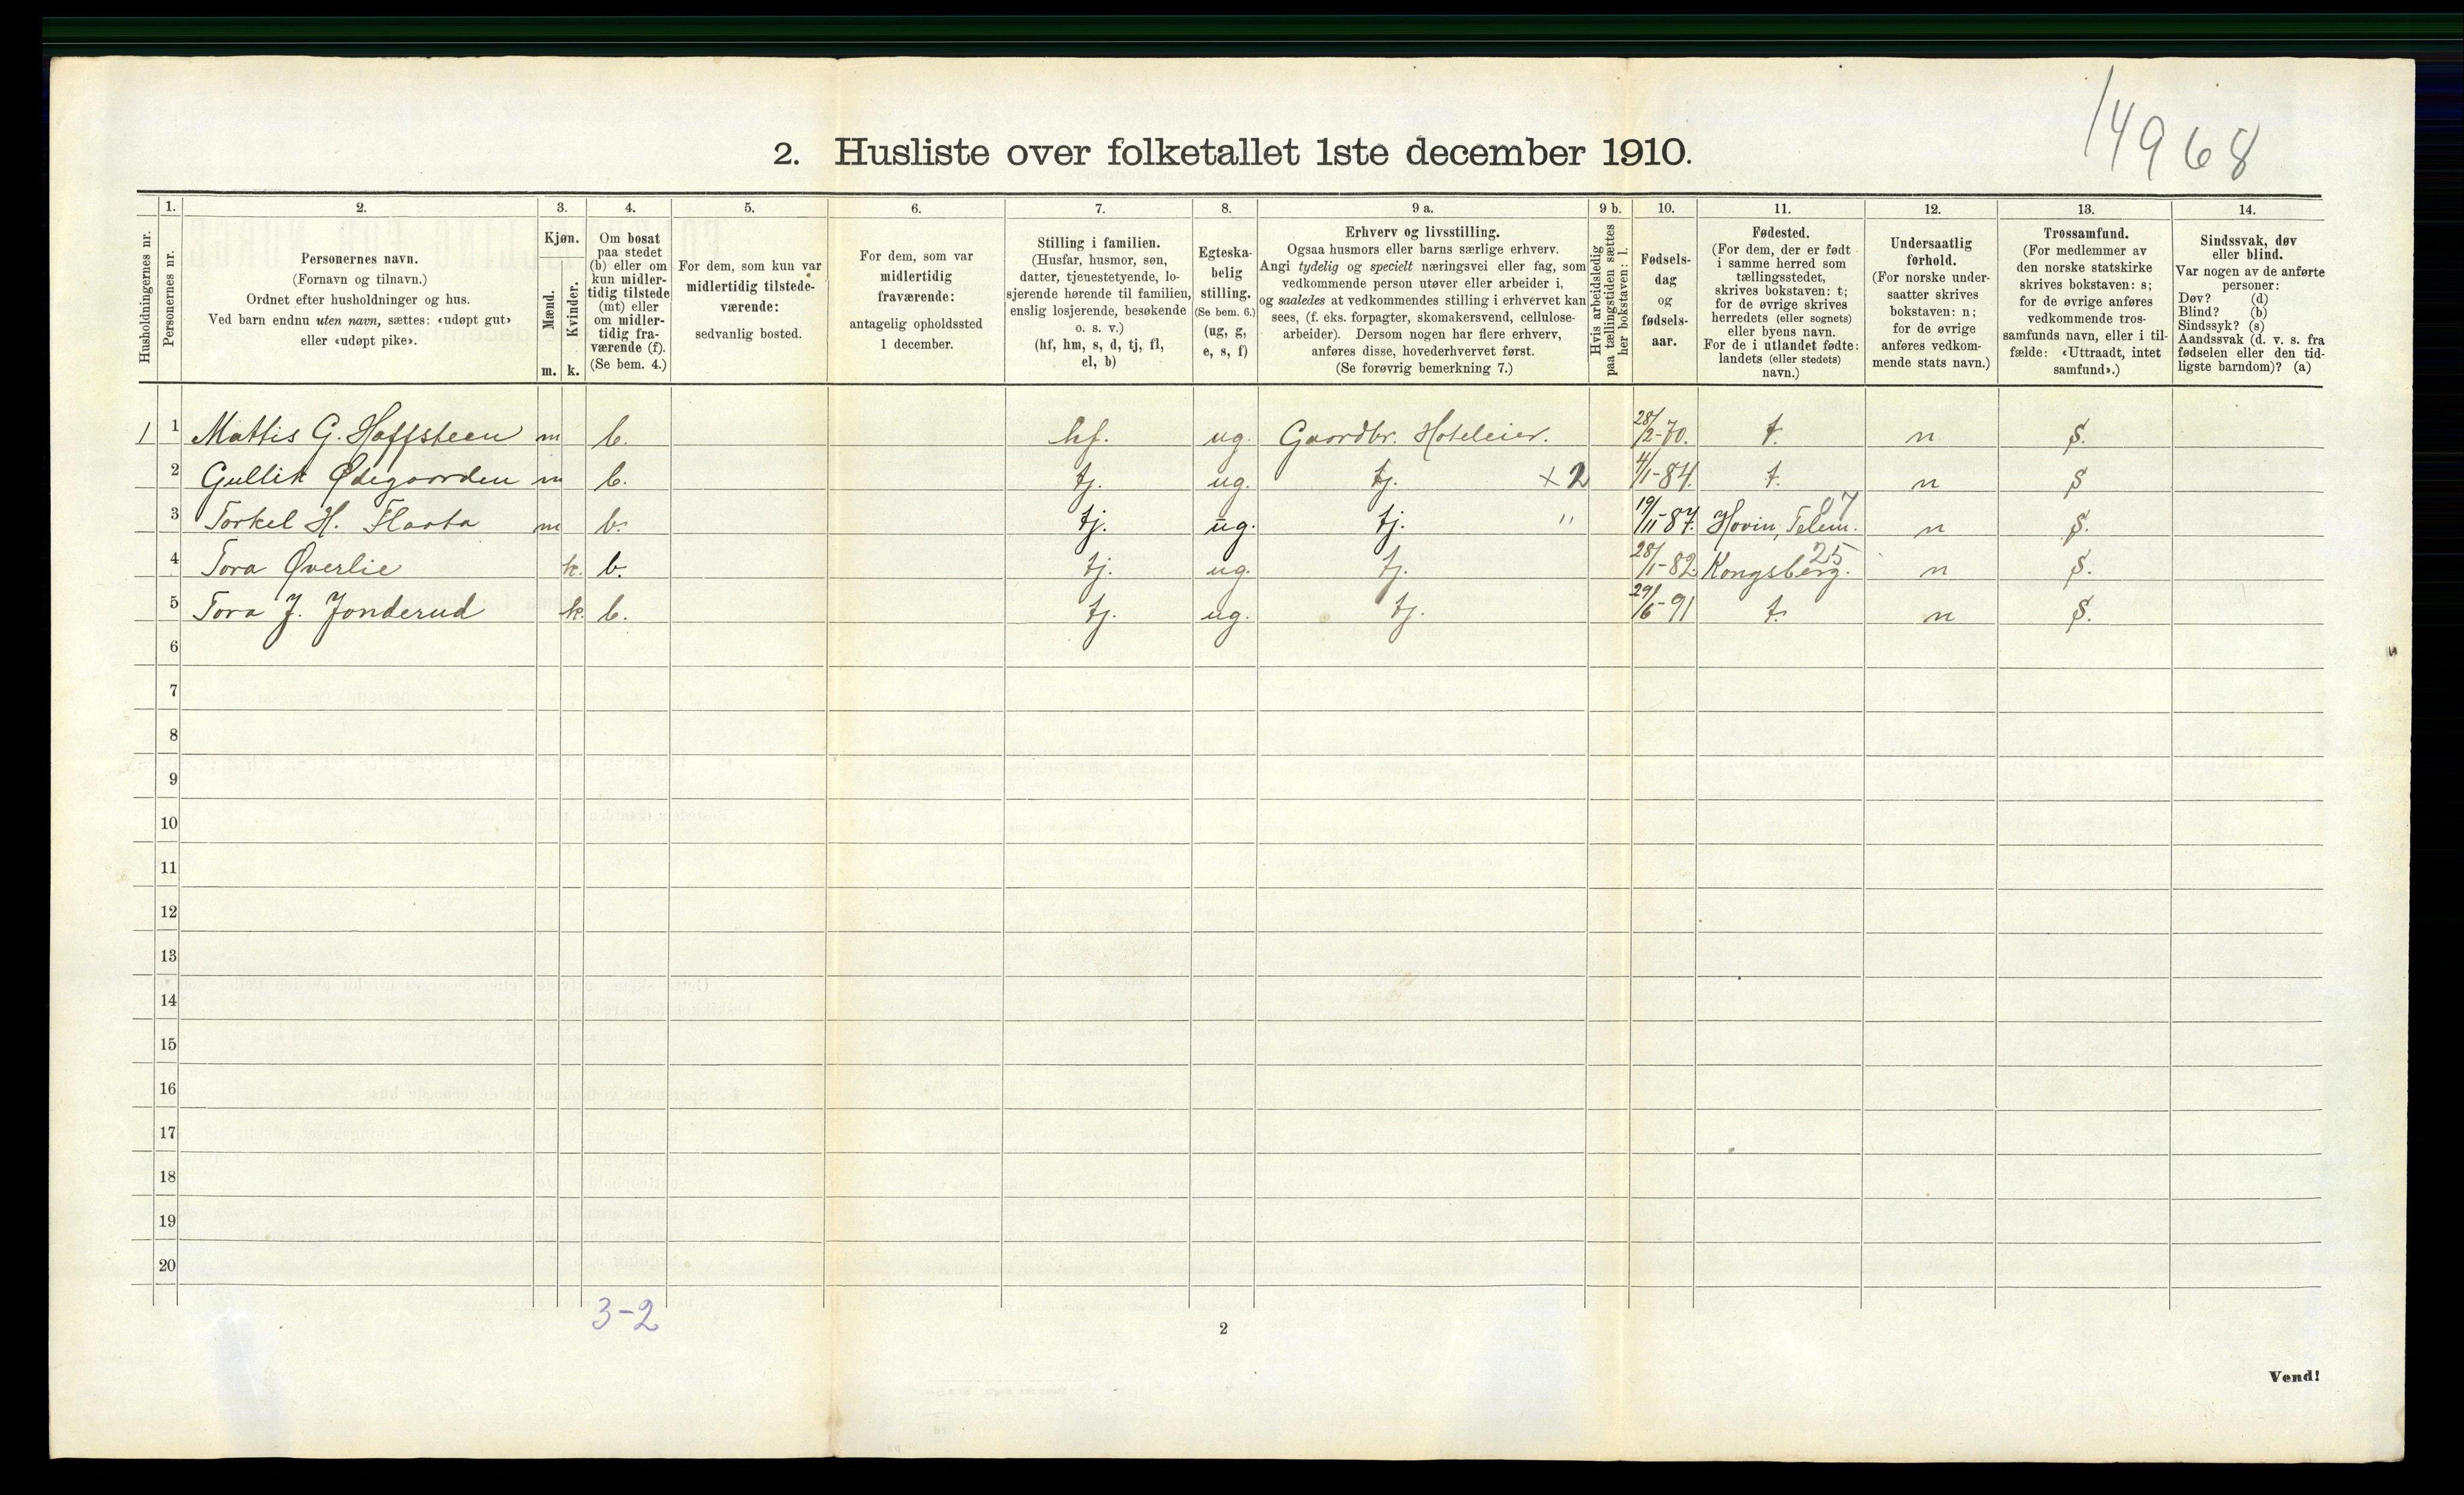 14968
2. Husliste over folketallet 1ste december 1910.
1. 2. 3. 4. 5. 6. 7. 8. 9 a. 9 b. 10. 11. 12. 13. 14.
Husholdningernes nr.
Personernes nr.
Personernes navn.
(Fornavn og tilnavn.)
Ordnet efter husholdninger og hus.
Ved barn endnu uten navn, sættes: «udøpt gut»
eller «udøpt pike».
Kjøn.
Mænd.
Kvinder.
m. k.
Om bosat
paa stedet
(b) eller om
kun midler-
tidig tilstede
(mt) eller
om midler-
tidig fra-
værende (f).
(Se bem. 4.)
For dem, som kun var
midlertidig tilstede-
værende:
sedvanlig bosted.
For dem, som var
midlertidig
fraværende:
antagelig opholdssted
1 december.
Stilling i familien.
(Husfar, husmor, søn,
datter, tjenestetyende, lo-
sjerende hørende til familien,
enslig losjerende, besøkende
o. s. v.)
(hf, hm, s, d, tj, fl,
el, b)
Egteska-
belig
stilling.
(Se bem. 6.)
(ug, g,
e, s, f)
Erhverv og livsstilling.
Ogsaa husmors eller barns særlige erhverv.
Angi tydelig og specielt næringsvei eller fag, som
vedkommende person utøver eller arbeider i,
og saaledes at vedkommendes stilling i erhvervet kan
sees, (f. eks. forpagter, skomakersvend, cellulose-
arbeider). Dersom nogen har flere erhverv,
anføres disse, hovederhvervet først.
(Se forøvrig bemerkning 7.)
Hvis arbeidsledig
paa tællingstiden sættes
her bokstaven: l.
Fødsels-
dag
og
fødsels-
aar.
Fødested.
(For dem, der er født
i samme herred som
tællingsstedet,
skrives bokstaven: t;
for de øvrige skrives
herredets (eller sognets)
eller byens navn.
For de i utlandet fødte:
landets (eller stedets)
navn.)
Undersaatlig
forhold.
(For norske under-
saatter skrives
bokstaven: n;
for de øvrige
anføres vedkom-
mende stats navn.)
Trossamfund.
(For medlemmer av
den norske statskirke
skrives bokstaven: s;
for de øvrige anføres
vedkommende tros-
samfunds navn, eller i til-
fælde: «Uttraadt, intet
samfund».)
Sindssvak, døv
eller blind.
Var nogen av de anførte
personer:
Døv? (d)
Blind? (b)
Sindssyk? (s)
Aandssvak (d. v. s. fra
fødselen eller den tid-
ligste barndom)? (a)
1 1 Mattis G. Hoffsteen m b. hf. ug. Gaardbr. Hoteleier. 28/2-70. t. n S.
2 Gullik Ødegaarden m b. tj. ug. tj. × 2 4/1-84. t. n S
3 Torkel H. Flaata m b. tj. ug. tj. " 19/11-87. Hovin, Telem. 07 n S.
4 Tora Øverlie k. b. tj. ug. tj. 28/1-82. Kongsberg. 25 n S.
5 Tora J. Jonderud k. b. tj. ug. tj. 29/6-91 t. n S.
6
7
8
9
10
11
12
13
14
15
16
17
18
19
20
3-2
2
Vend!